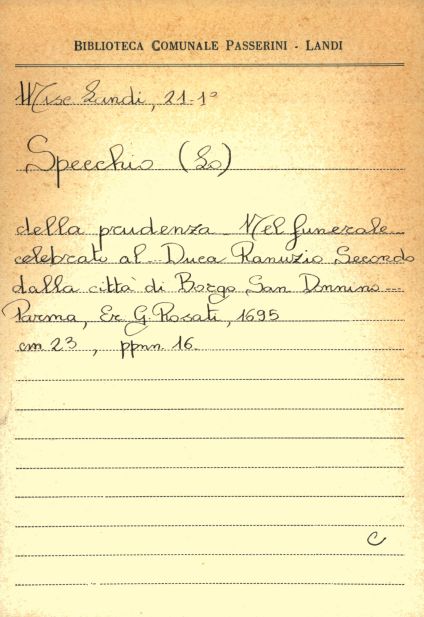 BIBLIOTECA COMUNALE PASSERINI - LANDI
Misc Landi, 21-1°
Specchio (Lo)
della prudenza - Nel funerale
celebrato al Duca Ranuzio Secondo
dalla città di Borgo San Donnino -
Parma, Er G. Rosati, 1695
cm 23, ppnn 16
C